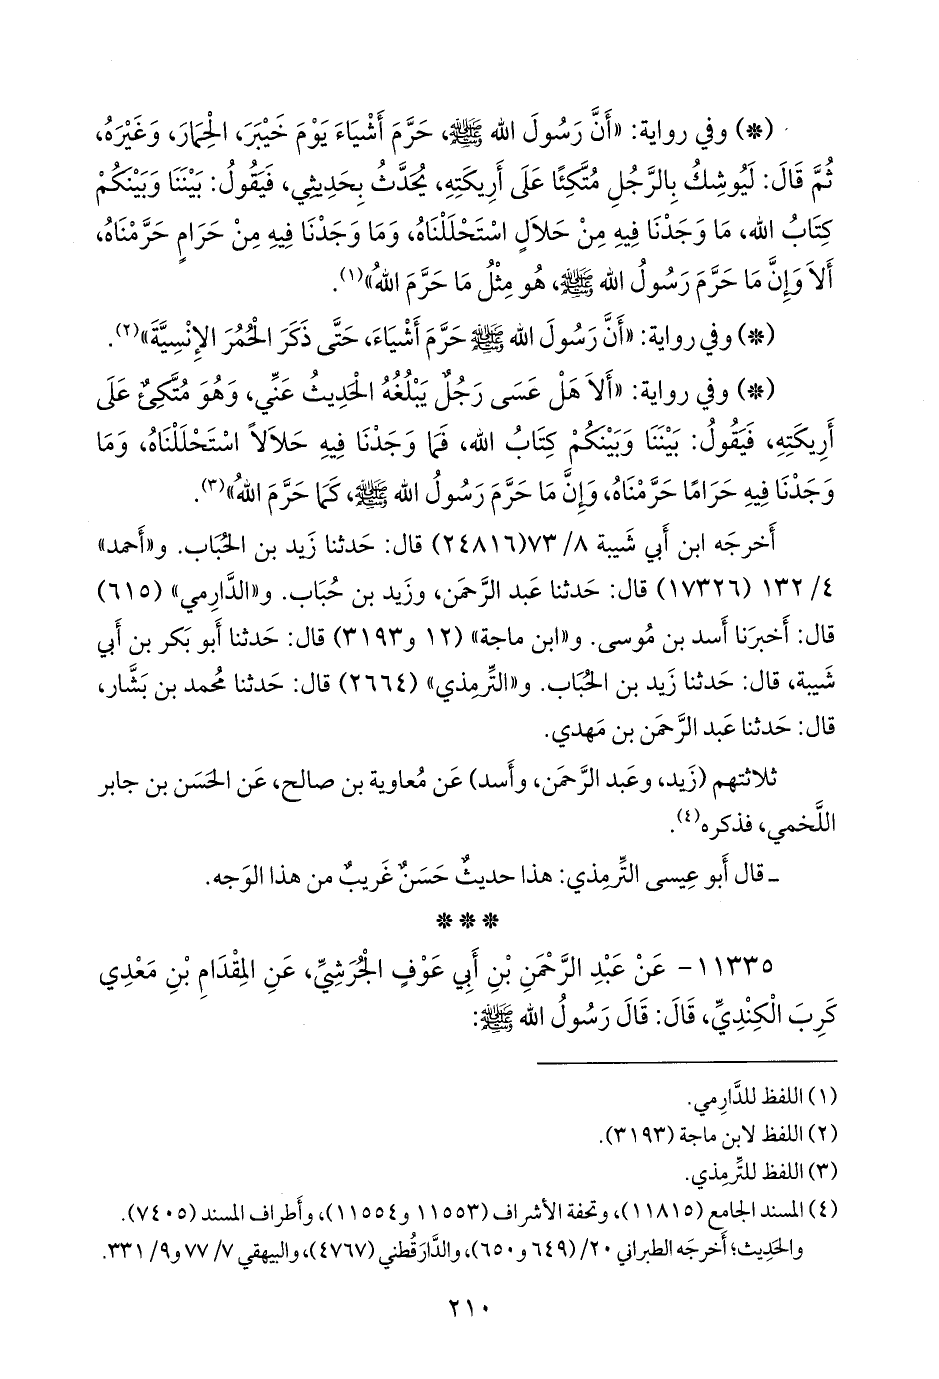 (*) وفي رواية: «أَنَّ رَسُولَ الله ﷺ، حَرَّمَ أَشْيَاءَ يَوْمَ خَيْبَرَ، الْحِمَارَ، وَغَيْرَهُ،
ثُمَّ قَالَ: لَيُوشِكُ بِالرَّجُلِ مُتَّكِئًا عَلَى أَرِيكَتِهِ، يُحَدَّثُ بِحَدِيثِي، فَيَقُولُ: بَيْنَنَا وَبَيْنَكُمْ
كِتَابُ الله، مَا وَجَدْنَا فِيهِ مِنْ حَلَالٍ اسْتَحْلَلْنَاهُ، وَمَا وَجَدْنَا فِيهِ مِنْ حَرَامٍ حَرَّمْنَاهُ،
أَلَا وَإِنَّ مَا حَرَّمَ رَسُولُ الله ﷺ، هُوَ مِثْلُ مَا حَرَّمَ اللهُ»(١).
(*) وفي رواية: «أَنَّ رَسُولَ الله ﷺ حَرَّمَ أَشْيَاءَ، حَتَّى ذَكَرَ الْحُمُرَ الإِنْسِيَّةَ»(٢).
(*) وفي رواية: «أَلَا هَلْ عَسَى رَجُلٌ يَبْلُغُهُ الْحَدِيثُ عَنِّي، وَهُوَ مُتَّكِئٌ عَلَى
أَرِيكَتِهِ، فَيَقُولُ: بَيْنَنَا وَبَيْنَكُمْ كِتَابُ الله، فَمَا وَجَدْنَا فِيهِ حَلَالًا اسْتَحْلَلْنَاهُ، وَمَا
وَجَدْنَا فِيهِ حَرَامًا حَرَّمْنَاهُ، وَإِنَّ مَا حَرَّمَ رَسُولُ الله ﷺ، كَمَا حَرَّمَ اللهُ»(٣).
أَخرجَه ابن أَبي شَيبة ٨/ ٧٣(٢٤٨١٦) قال: حَدثنا زَيد بن الحُبَاب. و«أَحمد»
٤/ ١٣٢ (١٧٣٢٦) قال: حَدثنا عَبد الرَّحمَن، وزَيد بن حُبَاب. و«الدَّارِمي» (٦١٥)
قال: أَخبرَنا أَسد بن مُوسى. و«ابن ماجة» (١٢ و٣١٩٣) قال: حَدثنا أَبو بَكر بن أَبي
شَيبة، قال: حَدثنا زَيد بن الحُبَاب. و«التِّرمِذي» (٢٦٦٤) قال: حَدثنا مُحمد بن بَشَّار،
قال: حَدثنا عَبد الرَّحمَن بن مَهدي.
ثلاثتهم (زَيد، وعَبد الرَّحمَن، وأَسد) عَن مُعاوية بن صالح، عَن الحَسَن بن جابر
اللَّخمي، فذكره(٤).
ـ قال أَبو عِيسى التِّرمِذي: هذا حديثٌ حَسَنٌ غَريبٌ من هذا الوَجه.
* * *
١١٣٣٥- عَنْ عَبْدِ الرَّحْمَنِ بْنِ أَبِي عَوْفٍ الْجُرَشِيِّ، عَنِ الْمِقْدَامِ بْنِ مَعْدِي
كَرِبَ الْكِنْدِيِّ، قَالَ: قَالَ رَسُولُ الله ﷺ:
(١) اللفظ للدَّارِمي.
(٢) اللفظ لابن ماجة (٣١٩٣).
(٣) اللفظ للتِّرمِذي.
(٤) المسند الجامع (١١٨١٥)، وتحفة الأشراف (١١٥٥٣ و١١٥٥٤)، وأَطراف المسند (٧٤٠٥).
والحَدِيث؛ أَخرجَه الطبراني ٢٠/ (٦٤٩ و٦٥٠)، والدَّارَقُطني (٤٧٦٧)، والبيهقي ٧/ ٧٧ و٩/ ٣٣١.
٢١٠